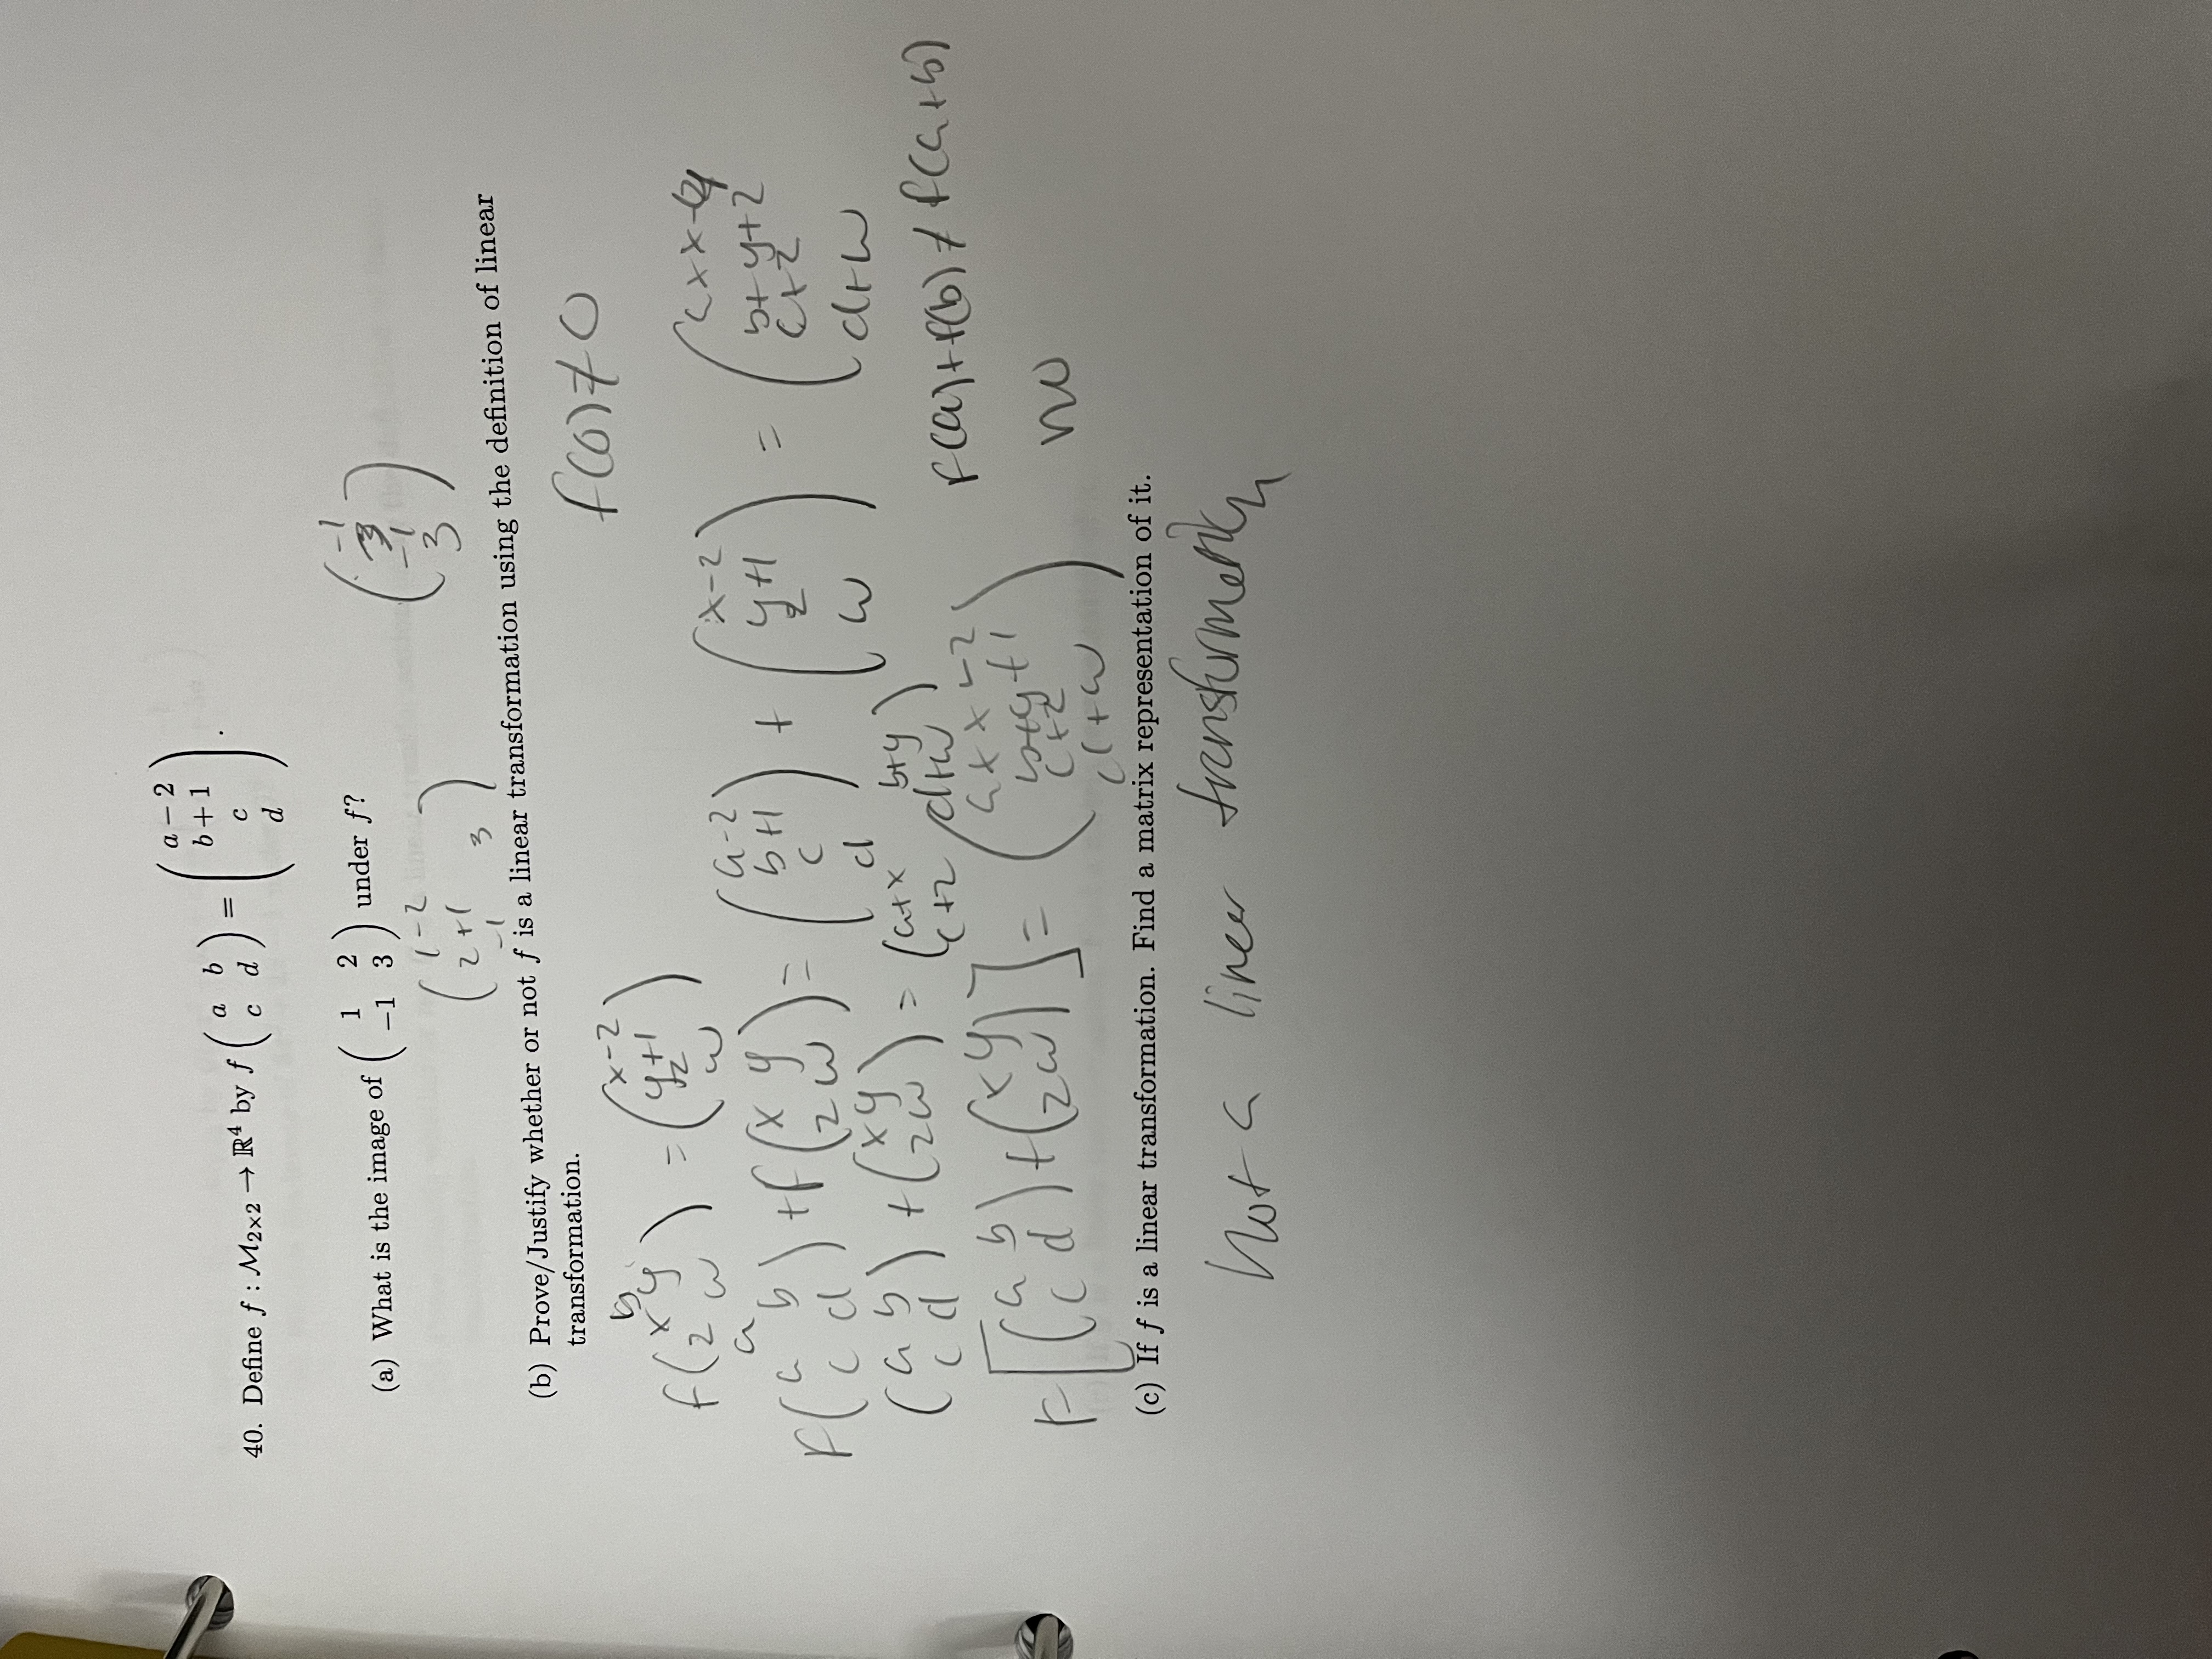 40. Define f : M₂ₓ₂ → ℝ⁴ by f ( a b ; c d ) = ( a − 2 ; b + 1 ; c ; d ) .
(a) What is the image of ( 1 2 ; −1 3 ) under f?
( 1-2 ; 2+1 ; -1 3 )
( -1 ; 3 ; -1 ; 3 )
(b) Prove/Justify whether or not f is a linear transformation using the definition of linear
transformation.
f(0)≠0
b
f( x y ; z w ) = ( x-2 ; y+1 ; z ; w )
a
F( a b ; c d ) + f( x y ; z w ) = ( a-2 ; b+1 ; c ; d ) + ( x-2 ; y+1 ; z ; w ) = ( a+x-4 ; b+y+2 ; c+z ; d+w )
( a b ; c d ) + ( x y ; z w ) = ( a+x b+y ; c+z d+w )
F(a)+f(b) ≠ f(a+b)
F[ ( a b ; c d ) + ( x y ; z w ) ] = ( a+x-2 ; b+y+1 ; c+z ; d+w )
no
(c) If f is a linear transformation. Find a matrix representation of it.
Not a linear transformation